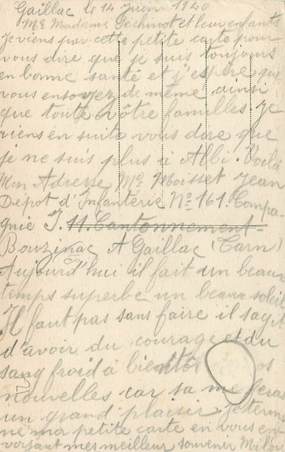 Gaillac le 14 Juin 1940
Mr Madame Pechinot et leur enfants
Je viens par cette petite carte pour
vous dire que je suis toujours
en bonne santé et j'espère que
vous en soyez de même ainsi
que toute vôtre familles. Je
viens en suite vous dire que
je ne suis plus à Albi. Voilà
Mon Adresse Mr Moisset Jean
Dépot d'Infanterie No 161. Compa-
gnie I. 11. Cantonnement
Bouzinac A Gaillac (Tarn)
Aujourd'hui il fait un beau
temps superbe un beau soleil
Il faut pas sans faire il sagit
d'avoir du courage et du
sang froid à bientôt os
nouvelles car sa me feras
un grand plaisir je termine
ma petite carte en vous en
voyant mes meilleur souvenir